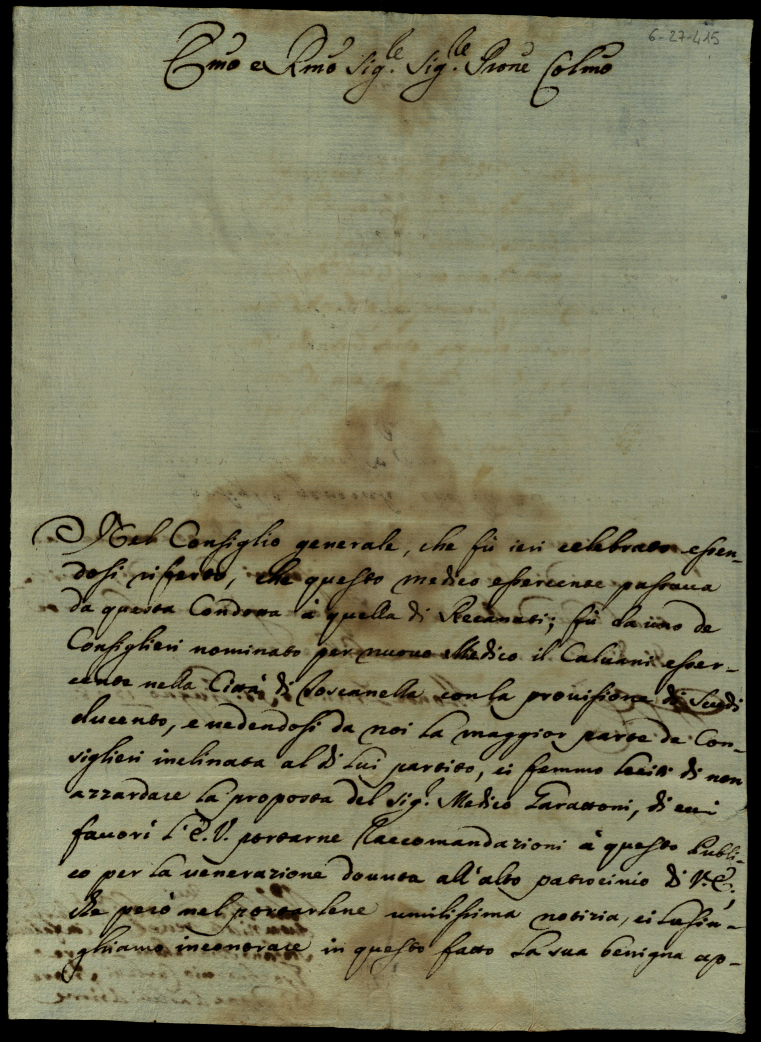 6-27-415
Emo e Rmo Sig.re Sig.re Prone Colmo
Nel Consiglio generale, che fù ieri celebrato essen-
dosi riferto, che questo medico essercente passava
da questa Condotta à quella di Recanati; fù da uno de
Consiglieri nominato per nuovo Medico il Calvani esser-
cente nella Città di Toscanella con la provisione di Scudi
ducento, e vedendosi da noi la maggior parte de Con-
siglieri inclinata al di lui partito, ci femmo leciti di non
azzardare la proposta del Sig.r Medico Tarattoni, di cui
favorì l'E.V. portarne Raccomandazioni à questo Publi-
co per la venerazione dovuta all'alto patrocinio di V.E.;
che però nel portarlene umilissima notizia, ci lusin-
ghiamo incontrare in questo fatto la sua benigna ap-